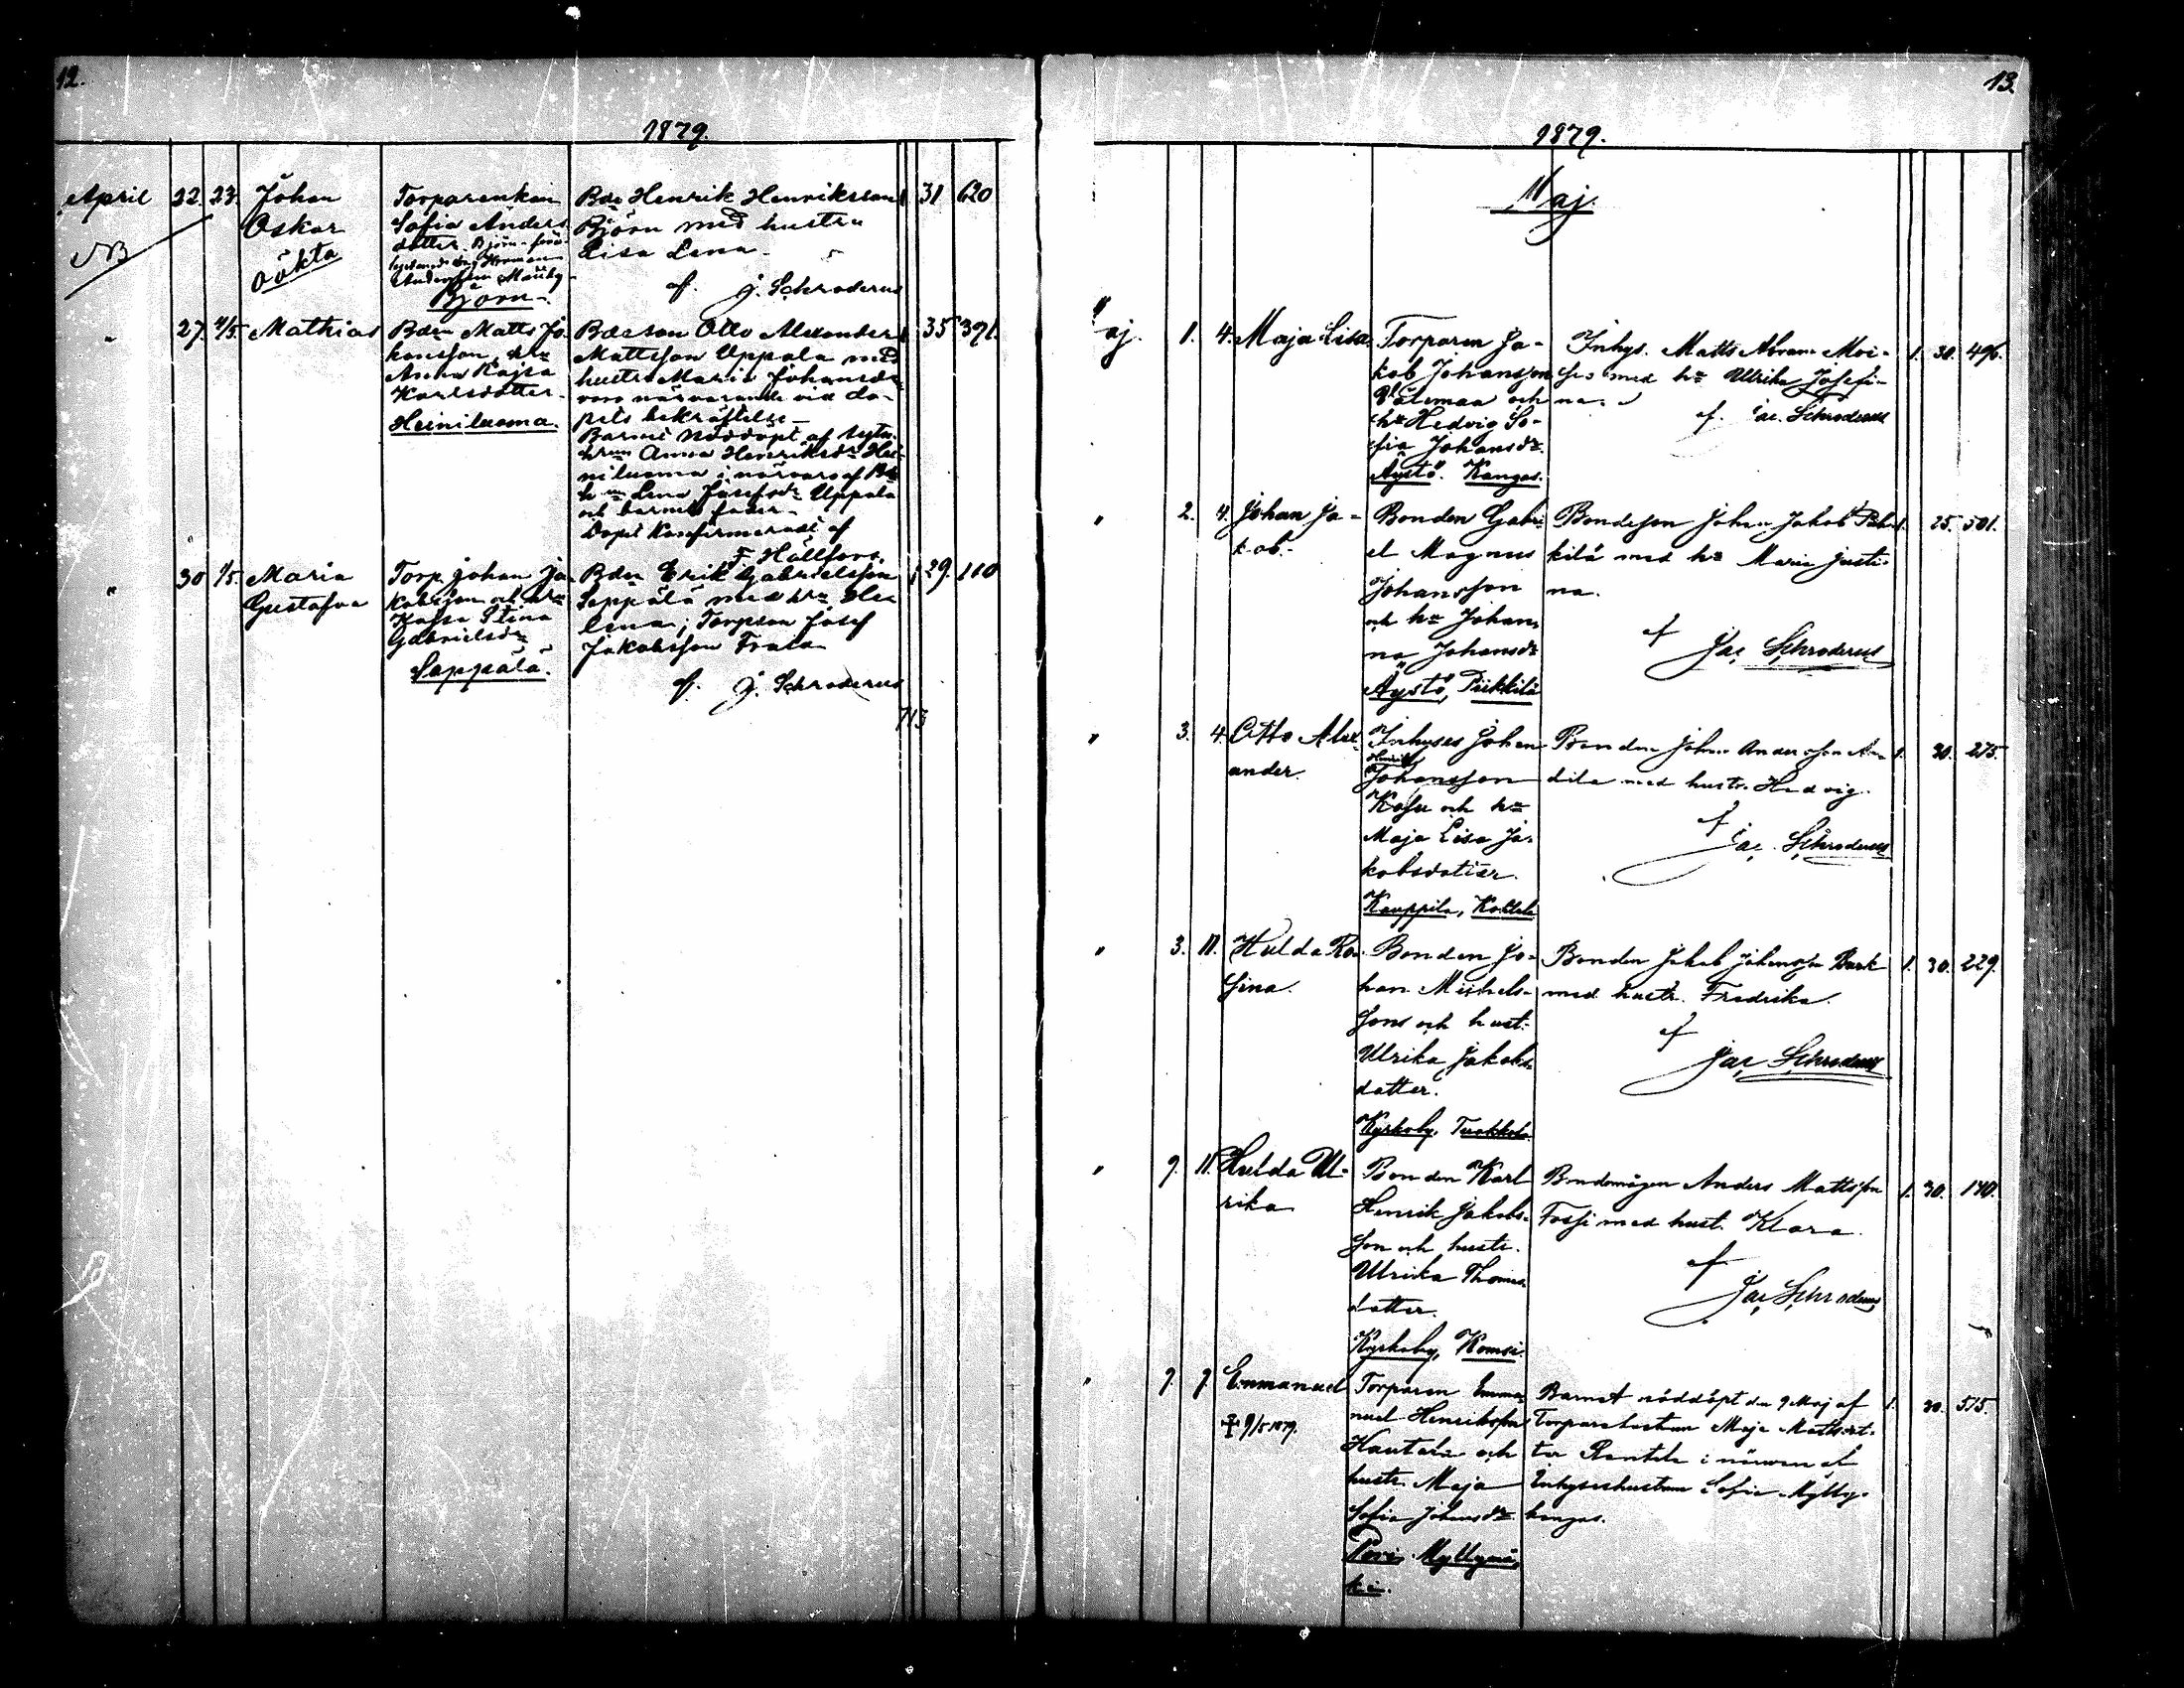 12.
1879.
April 22. 23. Johan
Oskar
oäkta
NB
Torparenkan
Sofia Anders
dotter Björn
Björn
Bdn Henrik Henriksson
Björn med hustru
Lisa Lena
af J. Schroderus
1 31 620
" 27. 4/5. Mathias
Bdn Matts Jo-
hansson, hru
Anna Kajsa
Karlsdotter
Heiniluoma.
Bdeson Otto Alexander
Mattsson Uppala med
hustru Maria Johansdr
voro närvarande vid do-
pets bekräftelse
Barnet nöddöpt af
Anna Henriksdr Hei-
niluoma i närvaro af
Lena Josefsdr Uppala
och barnets fader
Dopet Konfirmerade af
F. Hällfors
1 35 391.
" 30 1/5. Maria
Gustafva
Torp. Johan Ja-
kobsson och hru
Kajsa Stina
Gabrielsdr
Seppälä.
Bdn Erik Gabrielsson
Seppälä med hru He-
lena; Torpson Josef
Jakobsson Frala
af J. Schroderus
1 29. 110
713
13.
1879.
Maj.
Maj. 1. 4. Maja Lisa.
Torparen Ja-
kob Johansson
och
hu Hedvig So-
fia Johansdr.
Äystö. Kangas.
Inhys. Matts Abram Moi-
sio med hu Ulrika Josefi-
na.
af Jac. Schroderus
1. 30. 496.
" 2. 4. Johan Ja-
kob.
Bonden Gabri-
el Magnus
Johansson
och hu Johan-
na Johansdr
Äystö, Piikkilä
Bondeson Johan Jakob
kilä med hu Maria Justi-
na.
af
Jac Schroderus
1. 25. 501.
" 3. 4. Otto Alex-
ander.
Inhyses Johan
Henrik
Johansson
och hu
Maja Lisa Ja-
kobsdotter.
Kauppila,
Bonden Johan Andersson
med hustr. Hedvig.
af
Jac. Schroderus
1. 30. 275.
" 3. 11. Hulda Ro-
sina.
Bonden Jo-
han Michels-
son och hust.
Ulrika Jakobs-
dotter.
Kyrkoby, Turkkola
Bonden Jakob Johansson
med hustr. Fredrika.
af
Jac Schroderus
1. 30. 229.
" 9. 11. Hulda Ul-
rika
Bonden Karl
Henrik Jakobs-
son och hustr.
Ulrika Thomas-
dotter.
Kyrkoby, Komsi.
Bondemågen Anders Mattsson
Fossi med hust. Klara
af
Jac Schroderus
1. 30. 140.
" 9. 9. Emmanuel
‡ 9/5 1879.
Torparen Emma-
nuel Henriksson
Hautala och
hustr. Maja
Sofia Johansdr
Barnet nöddöpt den 9 Maj af
Torparehustrun Maja Mattsdot-
ter Rantala i närvaro af
Inhyseshustrun Sofia Mylly-
kangas.
Myllymä-
ki.
1. 30. 515.